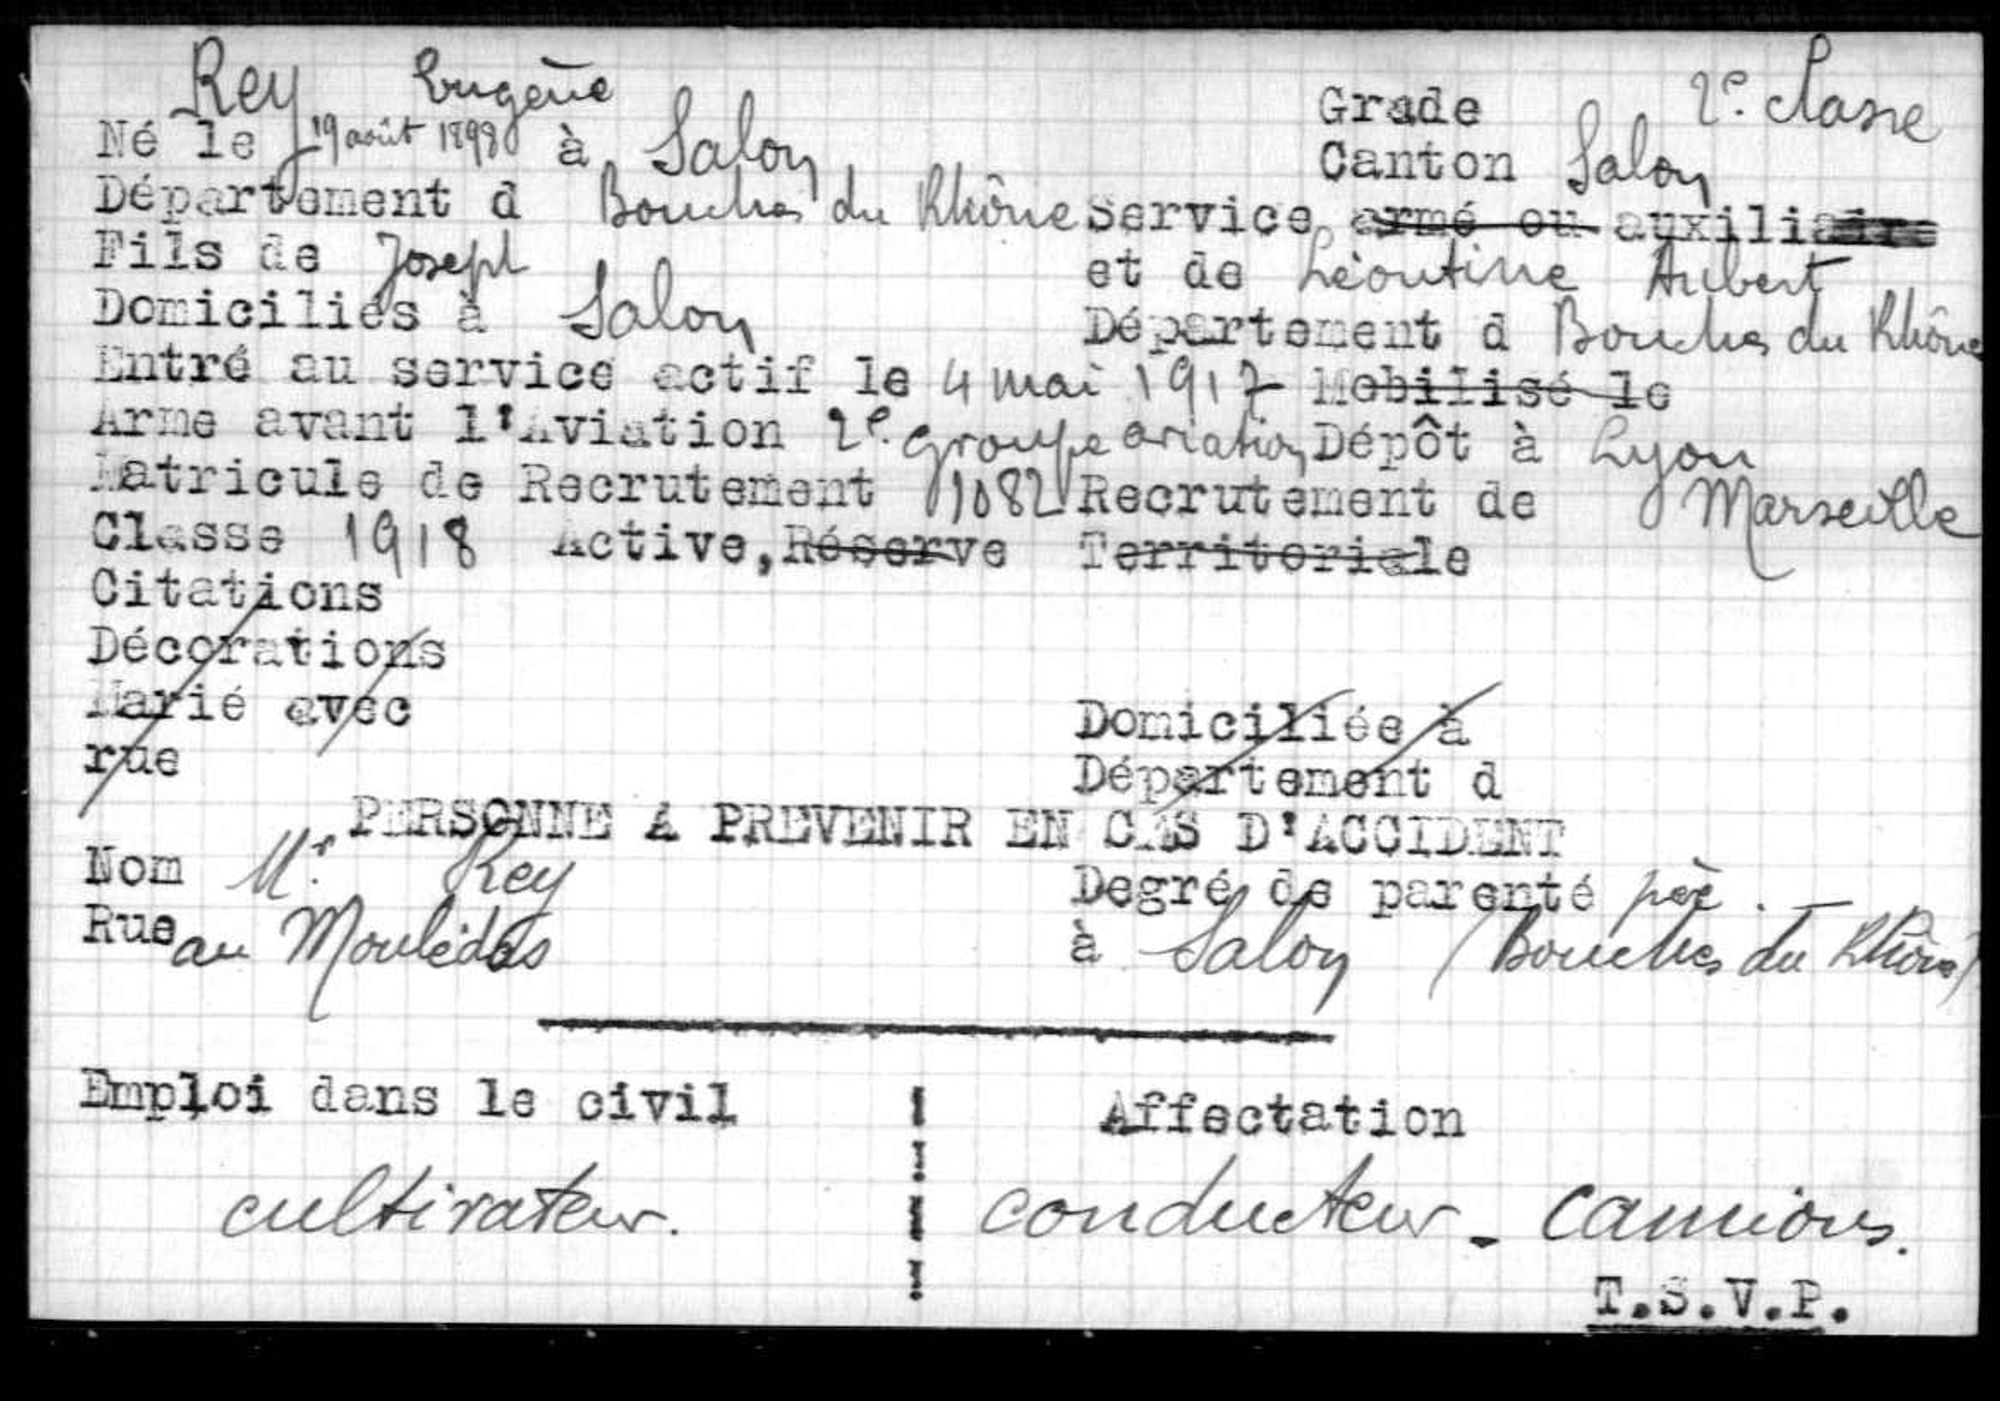 Rey Eugène Grade 2e classe
Né le 19 août 1898 à Salon Canton Salon
Département d Bouches du Rhône Service armé ou auxiliaire
Fils de Joseph et de Léontine Aubert
Domiciliés à Salon Département d Bouches du Rhône
Entré au service actif le 4 mai 1917 Mobilisé le
Arme avant l'Aviation 2e groupe aviation Dépôt à Lyon
Matricule de Recrutement 1082 Recrutement de Marseille
Classe 1918 Active, Réserve Territoriale
Citations
Décorations
Marié avec Domiciliée à
rue Département d
PERSONNE A PREVENIR EN CAS D'ACCIDENT
Nom Mr. Rey Degré de parenté père. —
Rue au Moulédas à Salon (Bouches du Rhône)
Emploi dans le civil Affectation
cultivateur. conducteur - camions.
T.S.V.P.